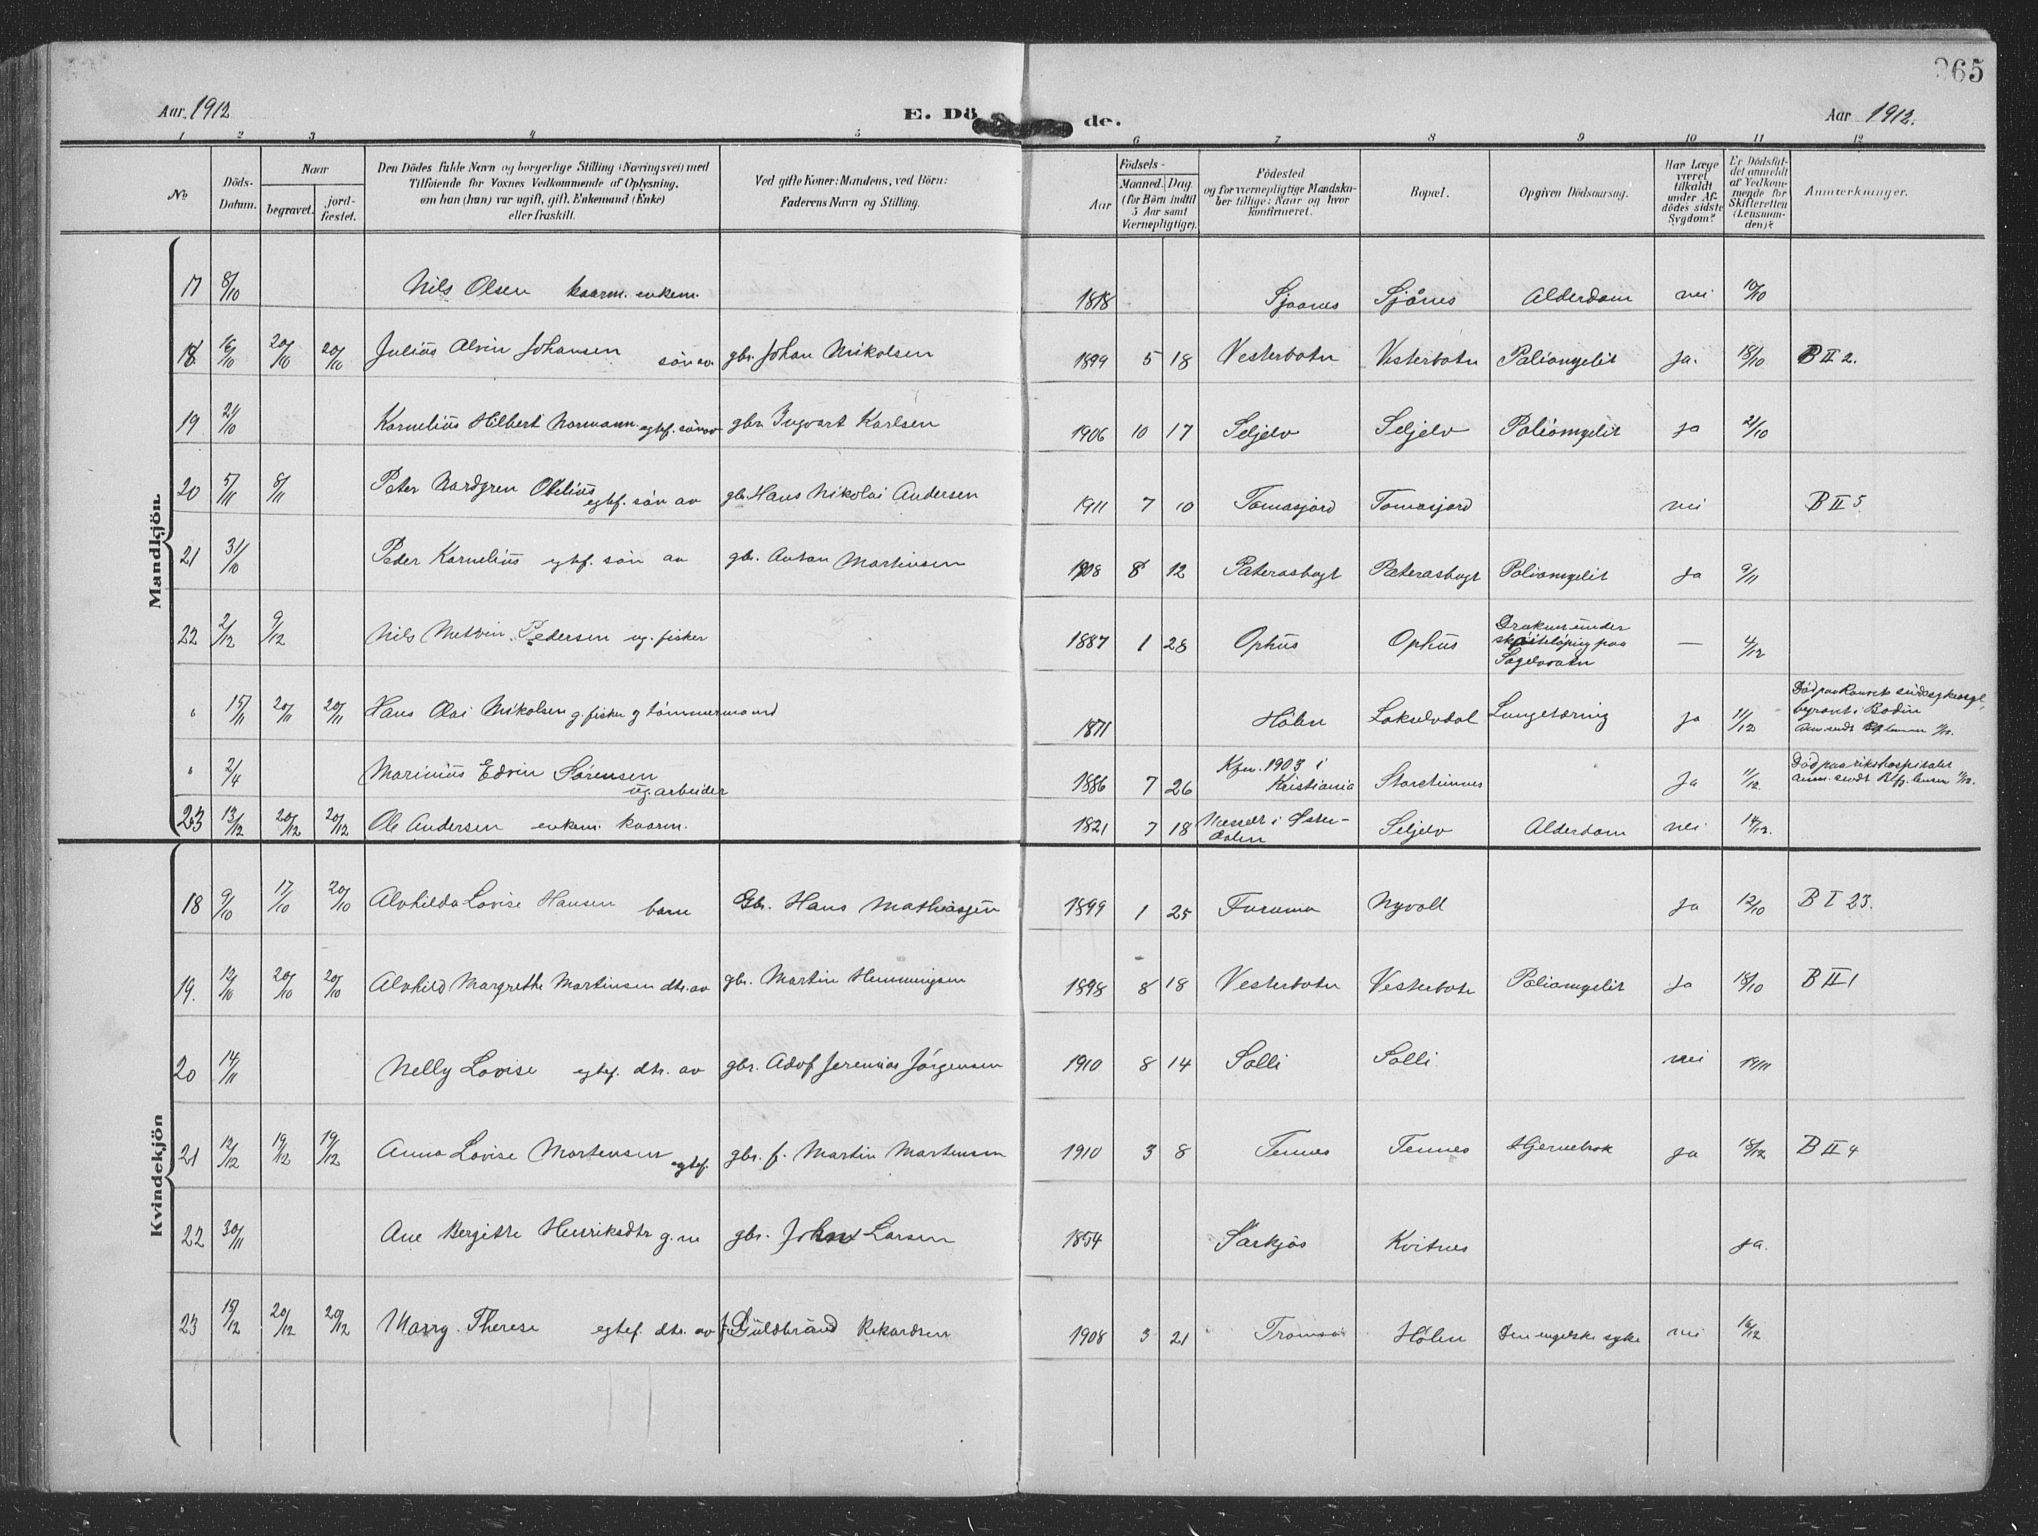 365
Aar 1912 E. Dö de. Aar 1912.
1 2 3 4 5 6 7 8 9 10 11 12
No
Döds-Datum.
Naar
begravet.
jord-fæstet.
Den Dödes fulde Navn og borgerlige Stilling (Næringsvei) med
Tilföiende for Voxnes Vedkommende af Oplysning,
om han (hun) var ugift, gift, Enkemand (Enke)
eller fraskilt.
Ved gifte Koner: Mandens, ved Börn:
Faderens Navn og Stilling.
Födsels-
Aar
Maaned. Dag.
(for Börn indtil
5 Aar samt
Værnepligtige).
Födested
og for værnepligtige Mandska-
ber tillige: Naar og hvor
konfirmeret.
Bopæl.
Opgiven Dödsaarsag.
Har Læge
været
tilkaldt
under Af-
dödes sidste
Sygdom?
Er Dödsfal-
det anmeldt
af Vedkom-
mende for
Skifteretten
(Lensman-
den)?
Anmærkninger.
Mandkjön.
17 8/10 Nils Olsen kaarm. enkem. 1818 Sjaanes Sjånes Alderdom nei 10/10
18 16/10 20/10 20/10 Julius Alvin Johansen sön av gbr Johan Nikolsen 1899 5 18 Vesterbotn Vesterbotn Poliomyelit Ja. 18/10 B II 2.
19 21/10 Kornelius Hilbert Normann egtef. sön av gbr. Ingvart Karlsen 1906 10 17 Seljelv Seljelv Poliomyelit ja 21/10
20 5/11 8/11 Peter Nordgren Obelius egtef. sön av gbr Hans Nikolai Andersen 1911 7 10 Tomasjord Tomasjord nei B II 5
21 31/10 Peder Kornelius egtef. sön av gbr. Anton Martinsen 1908 8 12 Peterasbogt Peterasbogt Poliomyelit Ja 9/11
22 2/12 9/12 Nils Metvin Pedersen ug. fisker 1887 1 28 Ophus Ophus Druknet under
skøiteløping paa
Sagelvvatn — 4/12
" 15/11 20/11 20/11 Hans Olai Nikolsen g. fisker og tömmermand 1871 Holen Lakselvdal Lungetæring ja 11/12 Död paa Rønvik sindssykeasyl,
begravet i Bodin
" 2/4 Marinius Edvin Sørensen
ug. arbeider 1886 7 26 Kfm. 1903 i
Kristiania Storsteinnes Ja 11/12. Död paa rikshospitalet
23 13/12 20/12 20/12 Ole Andersen enkem. kaarm. 1821 7 18 i Øster-
dalen Seljelv Alderdom nei 14/12.
Kvindekjön
18 9/10 17/10 20/10 Alvhilda Lovise Hansen barn Gbr. Hans Mathiasjen 1899 1 25 Furumo Nyvoll Ja 12/10 B I 23.
19. 12/10 20/10 20/10 Alvhild Margrethe Martinsen dtr. av gbr. Martin Hemmingsen 1898 8 18 Vesterbotn Vesterbotn Poliomyelit Ja 18/10 B II 1
20 14/11 Nelly Lovise egtef. dtr. av gbr. Adof Jeremias Jörgensen 1910 8 14 Solli Solli nei 19/11
21 12/12 19/12 19/12 Anna Lovise Mortensen egtef. gbr. f. Martin Martensen 1910 3 8 Tennes Tennes Hjernebrok Ja 18/12 B II 4
22 30/11 Ane Bergitte Henriksdtr g. m gbr. Johan Larsen 1854 Sarkjøs Kvitnes ja.
23 15/12 20/12 20/12 Marry Therese egtef. dtr. av Guldbrand Rikardsen 1908 3 21 Tromsö Holen Den engelske syke nei 16/12